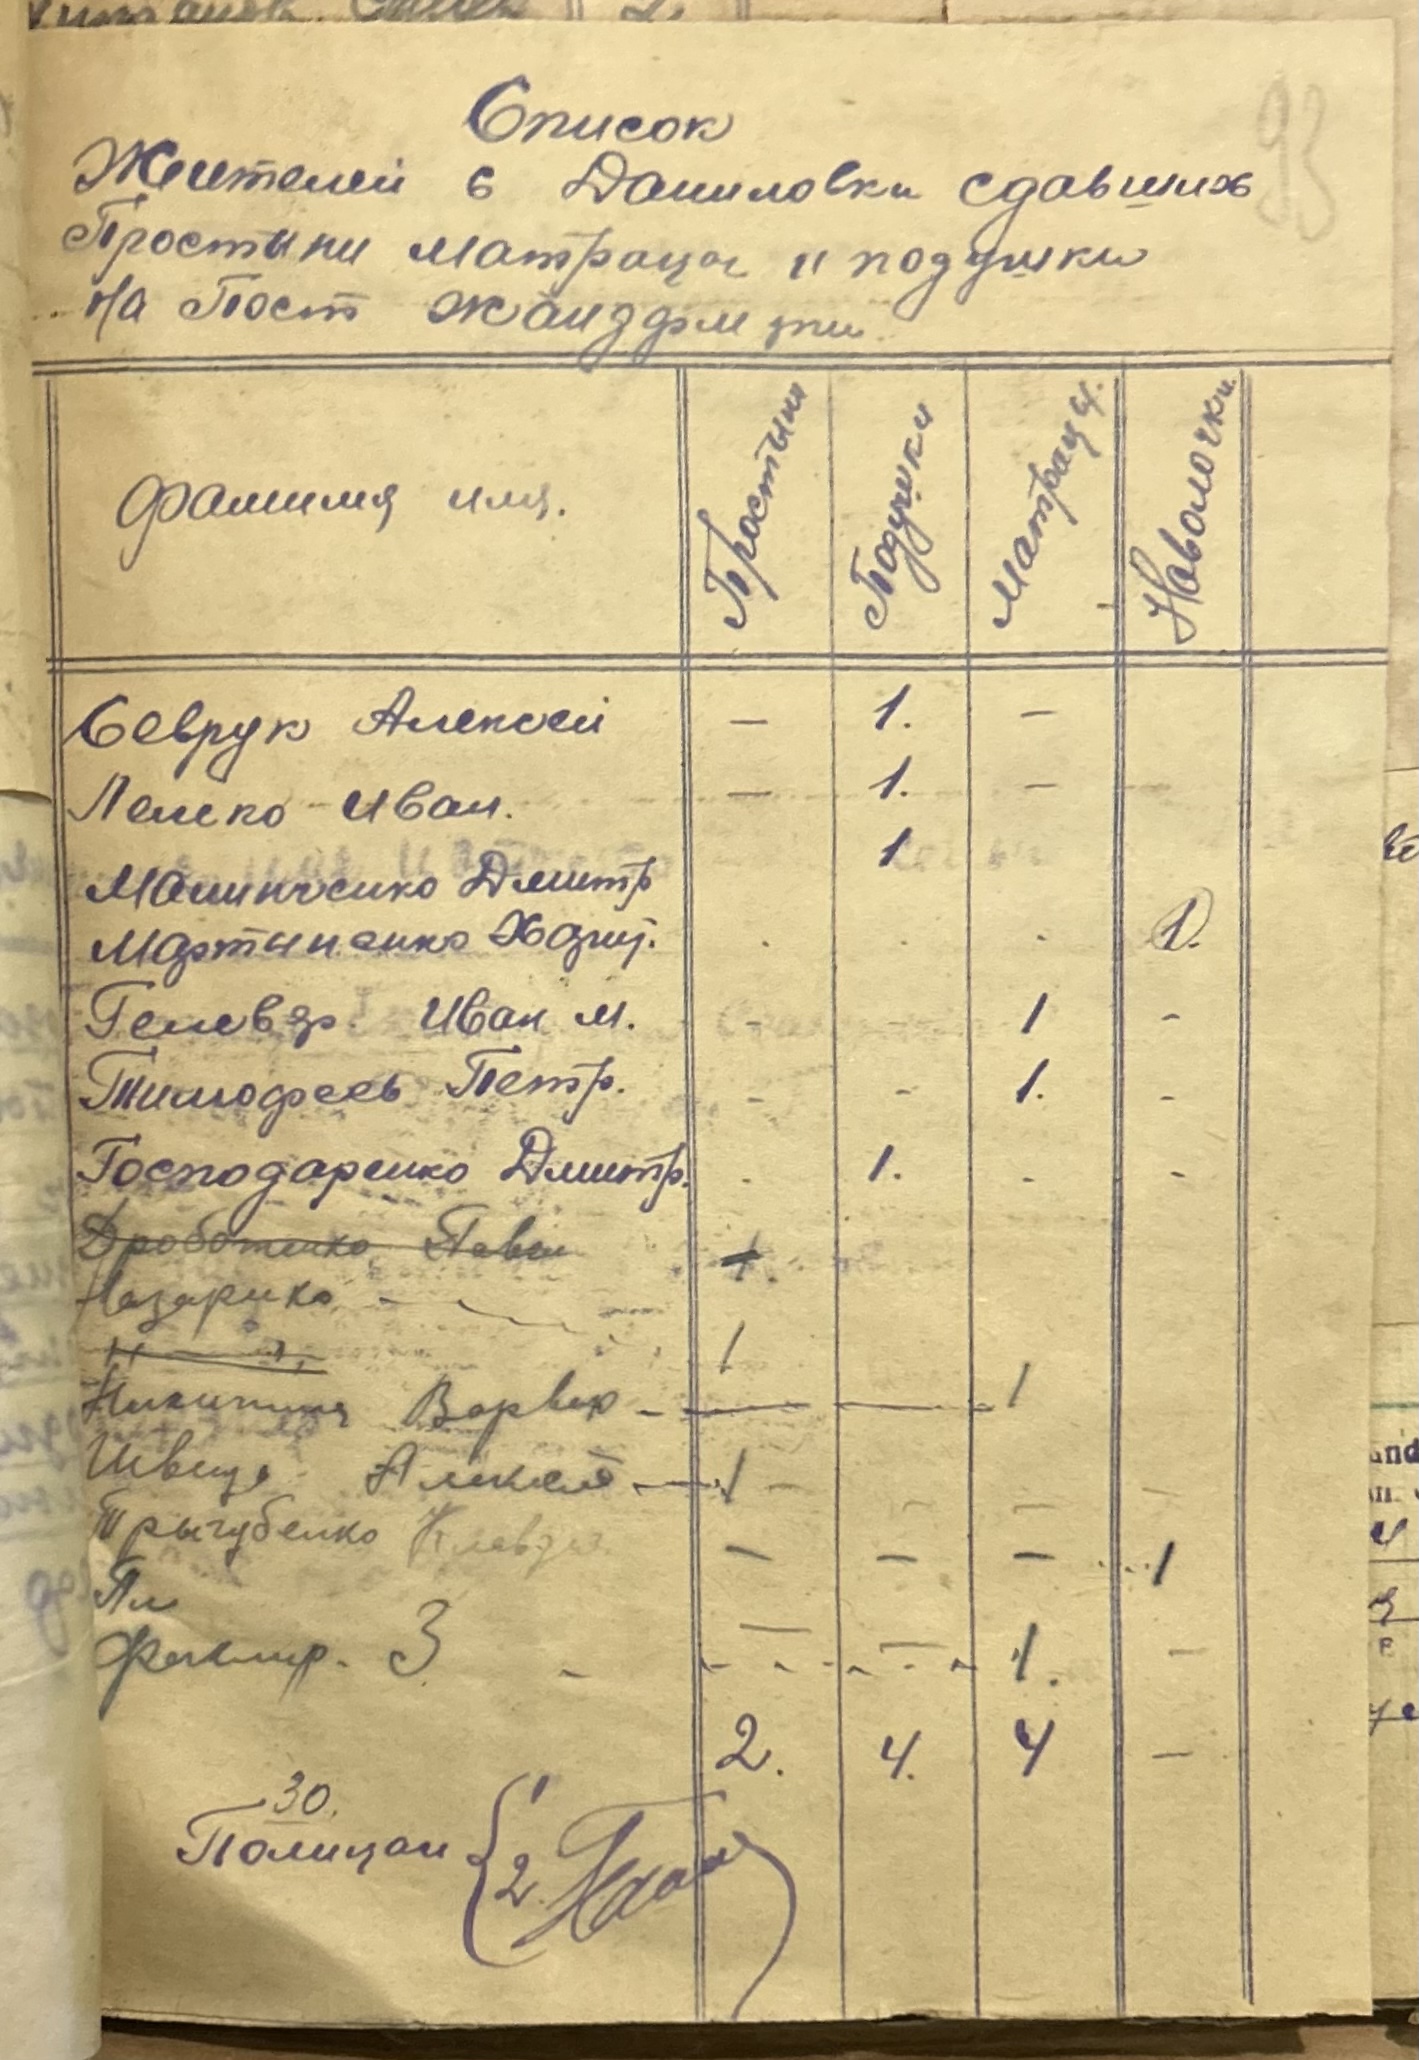 93
Список
Жителей с Даниловки сдавших
Простыни матрацы и подушки
на Пост жандарм рии
Фамилия имя. Простыни Подушки Матрацы. Наволочки.
Севрук Алексей — 1. —
Лелеко Иван. — 1. —
Малинченко Дмитр 1
Мартыненко Харит. 1.
Гелевер. Иван М. - - 1 -
Тимофеев Петр. - - 1. -
Господаренко Дмитр. . 1. . -
Дроботенко Павел 1.
Назаренко -
" " 1
Никитина Варвар - — — 1
Швец Алексей — 1 - - — —
Трыгубенко Клавдия — — — 1
Пл
3 - 1. —
2. 4. 4 —
30.
Полицаи { 1
2.